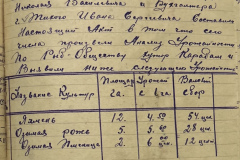 Николая Васильевича и Бухгалтера
Ивана Сергеевича составили
Настоящий Акт в том что сего
числа произвели Анализ Урожайности
По Обществу хутор Караван и
Выявили ниже следующую Урожайность
Название Культур Площадь Га. Урожай с 1 га Валовый Сбор
Ячмень 12. 4.50 54 цн
Озимая рожь 5. 5.60 28 цн
Озимая Пшеница 2. 6. 12 цн